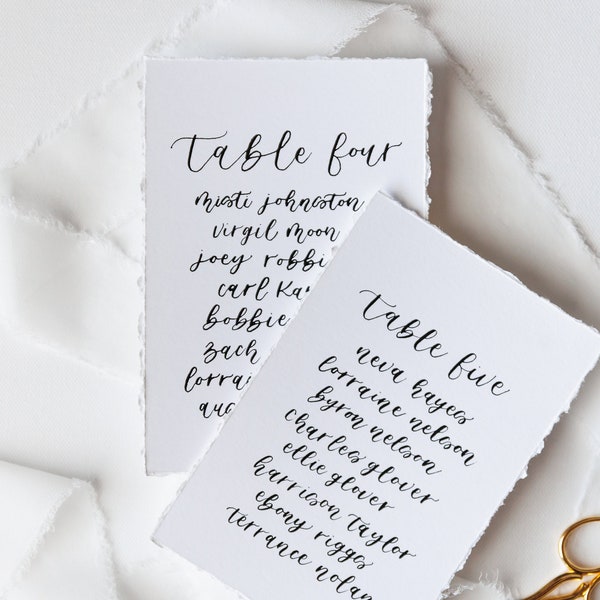 table four
misti johnston
virgil moon
joey
carl
bobbie
zach
table five
neva hayes
lorraine nelson
byron nelson
charles glover
ellie glover
harrison taylor
ebony riggs
terrance nolan